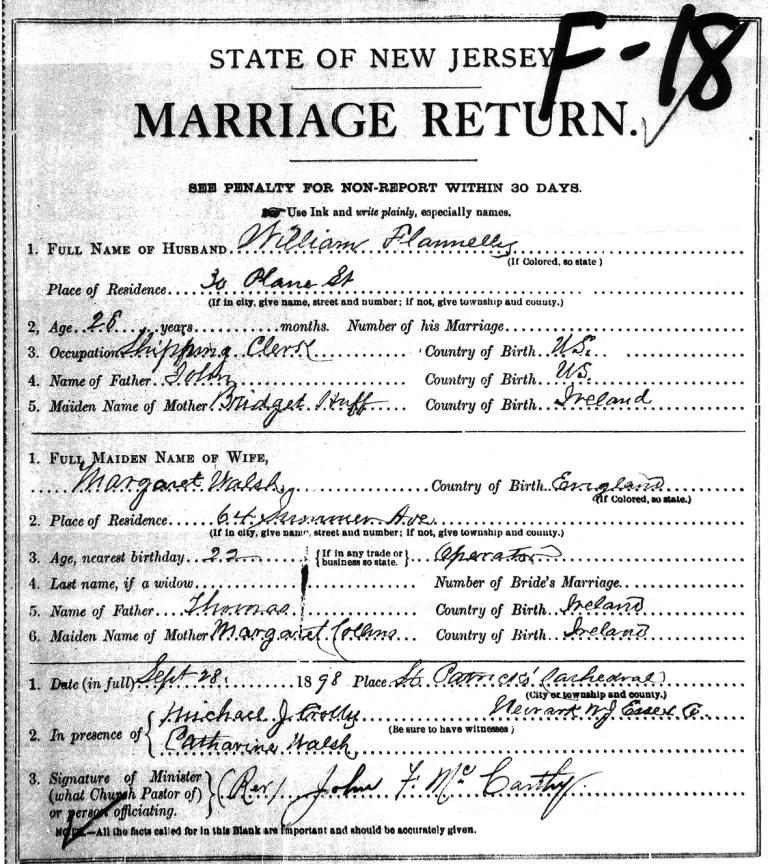 F-18
STATE OF NEW JERSEY
MARRIAGE RETURN.
SEE PENALTY FOR NON-REPORT WITHIN 30 DAYS.
☞ Use Ink and write plainly, especially names.
1. FULL NAME OF HUSBAND William Flannelly
(If Colored, so state)
Place of Residence 30 Plane St
(If in city, give name, street and number; if not, give township and county.)
2, Age 28 years months. Number of his Marriage
3. Occupation Shipping Clerk Country of Birth U.S.
4. Name of Father John Country of Birth U.S.
5. Maiden Name of Mother Bridget Country of Birth Ireland
1. FULL MAIDEN NAME OF WIFE,
Margaret Walsh Country of Birth England
(If Colored, so state.)
2. Place of Residence 64 Summer Ave
(If in city, give name, street and number; if not, give township and county.)
3. Age, nearest birthday 22 {If in any trade or business so state.} Operator
4. Last name, if a widow Number of Bride's Marriage
5. Name of Father Thomas Country of Birth Ireland
6. Maiden Name of Mother Margaret Collins Country of Birth Ireland
1. Date (in full) Sept 28. 1898 Place St Patrick's Cathedral
(City or township and county.)
Michael J. Newark NJ Essex Co.
2. In presence of { (Be sure to have witnesses)
Catharine Walsh
3. Signature of Minister
(what Church Pastor of) } (Rev) John F. McCarthy
or person officiating.
NOTE.—All the facts called for in this Blank are important and should be accurately given.